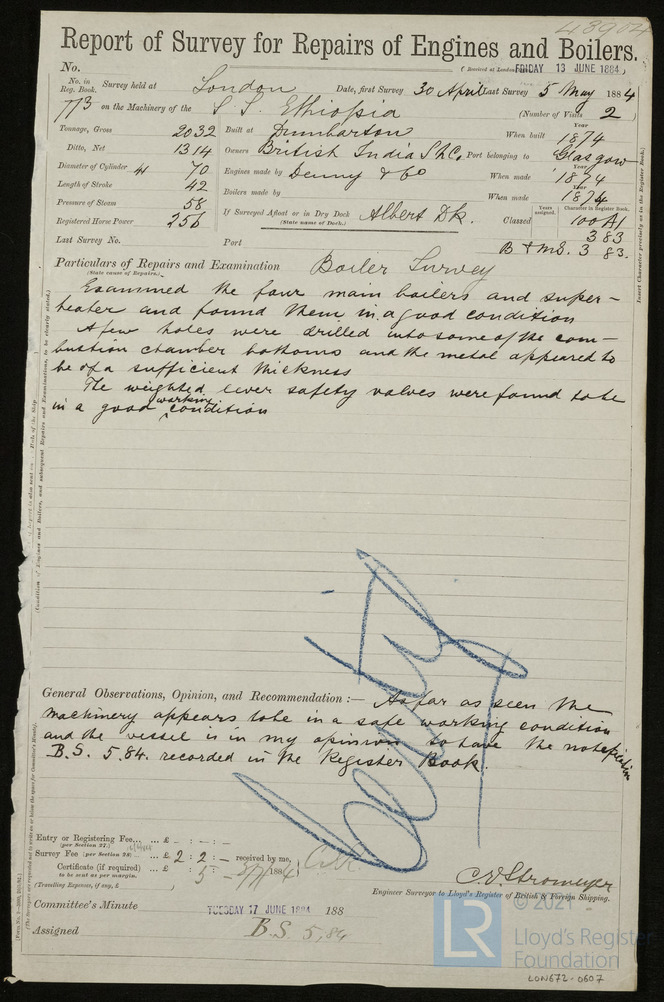 48904
Report of Survey for Repairs of Engines and Boilers.
No. (Received at London FRIDAY 13 JUNE 1884)
No. in Reg. Book. Survey held at London Date, first Survey 30 April Last Survey 5 May 1884
773 on the Machinery of the S.S. Ethiopia (Number of Visits 2)
Tonnage, Gross 2032 Built at Dumbarton When built Year 1874
Ditto, Net 1314 Owners British India S.N.Co. Port belonging to Glasgow
Diameter of Cylinder 41 70 Engines made by Denny & Co When made Year 1874
Length of Stroke 42 Boilers made by When made Year 1874
Pressure of Steam 58
Registered Horse Power 256 If Surveyed Afloat or in Dry Dock Albert Dk. Classed Years assigned. Character in Register Book. 100 A1
(State name of Dock.) 3 83
Last Survey No. Port B & M.S. 3 83.
Particulars of Repairs and Examination Boiler Survey
(State cause of Repairs.)
Examined the four main boilers and super-
heater and found them in a good condition
A few holes were drilled into some of the com-
bustion chamber bottoms and the metal appeared to
be of a sufficient thickness
The weighted lever safety valves were found to be
in a good working condition
General Observations, Opinion, and Recommendation :— As far as seen the
machinery appears to be in a safe working condition
and the vessel is in my opinion to have the notification
B.S. 5.84. recorded in the Register Book.
Entry or Registering Fee... ... £ - : - : -
(per Section 27.)
Survey Fee (per Section 28) ... £ 2 : 2 : - received by me,
Certificate (if required) ... £ : 5 : - 188
to be sent as per margin.
(Travelling Expenses, if any, £ )
C.E. Stromeyer
Engineer Surveyor to Lloyd's Register of British & Foreign Shipping.
Committee's Minute TUESDAY 17 JUNE 1884 188
Assigned B.S. 5,84
© 2021
LR
Lloyd's Register
Foundation
LON672-0607
Insert Character precisely as in the Register Book.)